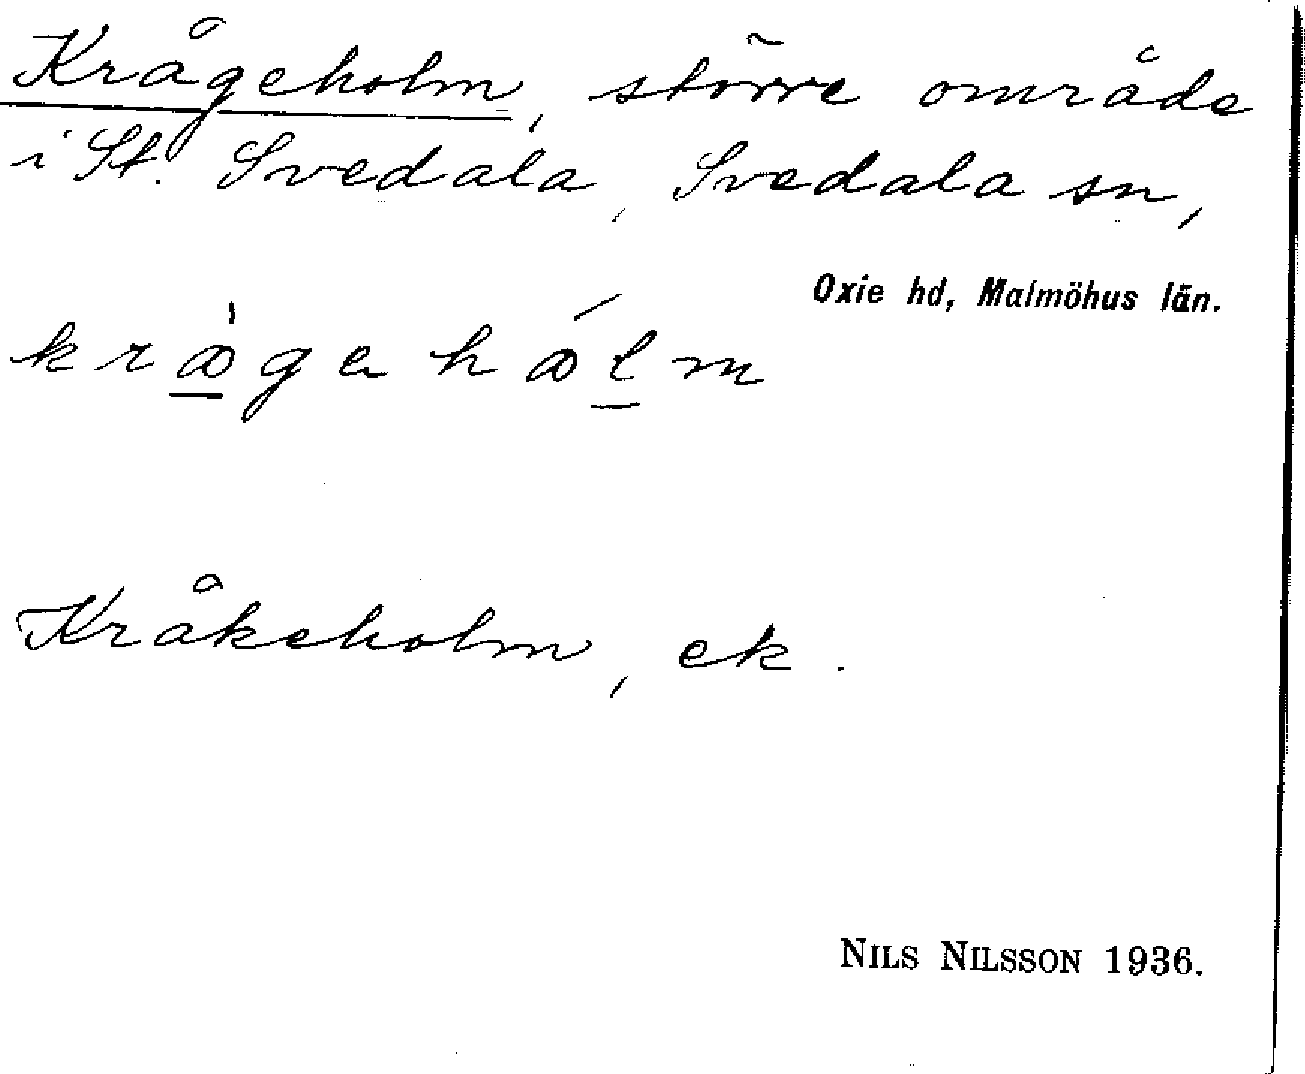 Krågeholm, större område
i St. Svedala, Svedala sn,
Oxie hd, Malmöhus län.
Kråkeholm, ek.
NILS NILSSON 1936.